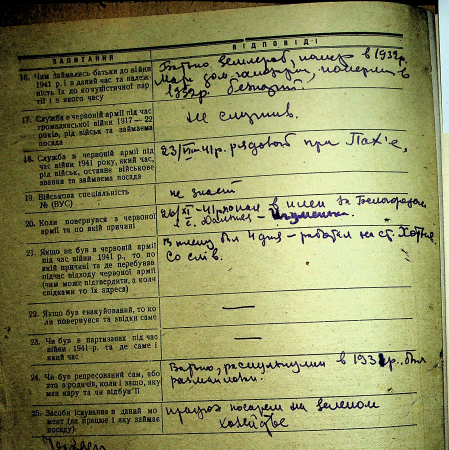 ЗАПИТАННЯ
ВІДПОВІДІ
16. Чим займались батьки до війни
1941 р. і в даний час та належ-
ність їх до комуністичної пар-
тії і з якого часу
Батько землероб, помер в 1932р.
Мати дом
1932р.
17. Служба в червоній армії під час
громадянської війни 1917 — 22
років, рід військ та займаєма
посада
не служив.
18. Служба в червоній армії під
час війни 1941 року, який час,
рід військ, останнє військове
звання та займаєма посада
23/VIII-41р. рядовой при
19. Військова спеціальність
№ (ВУО)
не знает
20. Коли повернувся з червоної
армії та по якій причині
26/XI-41р попал в плен
с.
21. Якщо не був в червоній армії
під час війни 1941 р., то по
якій причині та де перебував
підчас відходу червоної армії
(чим може підтвердити, а коли
свідками то їх адреса)
В плену был 4 дня – работал на ст.
Со слів.
22. Якщо був евакуйований, то ко-
ли повернувся та звідки саме
—
23. Чи був в партизанах під час
війни 1941-р. та де саме і
який час
—
24. Чи був репресований сам, або
хто з родичів, коли і защо, яку
мав кару та чи відбув її
в 193 р. был
25. Засоби існування в даний мо-
мент (де працює і яку займає
посаду)
на зеленом
хозяйстве